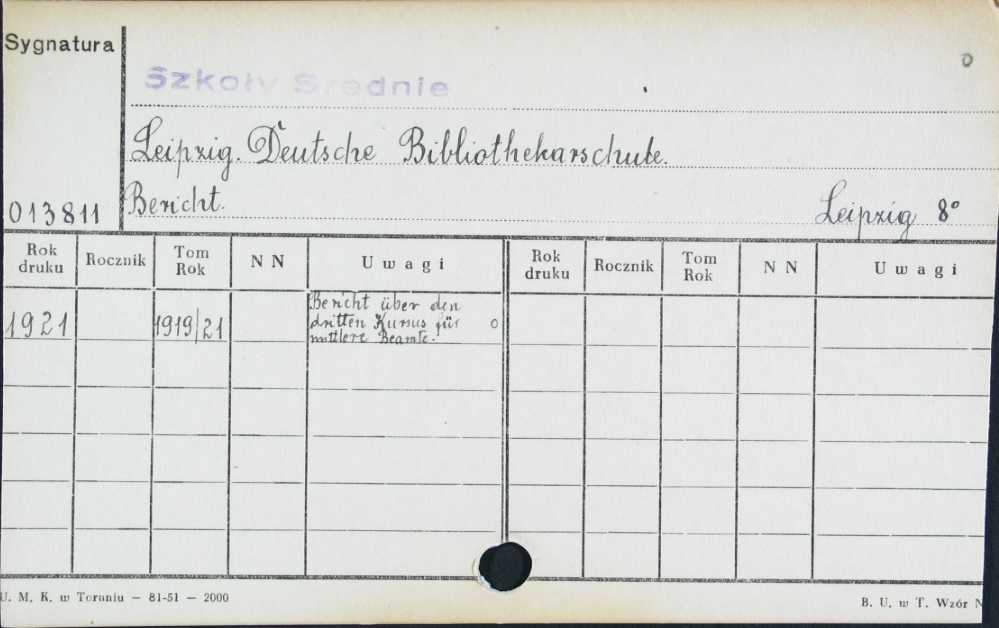 Sygnatura
0
Szkoły Średnie
Leipzig. Deutsche Bibliothekarschule.
Bericht.
Leipzig 8°
013811
Rok druku Rocznik Tom Rok NN Uwagi Rok druku Rocznik Tom Rok NN Uwagi
1921 1919/21 Bericht über den
dritten Kursus für 0
mittlere Beamte.
U. M. K. w Toruniu – 81-51 – 2000
B. U. w T. Wzór N